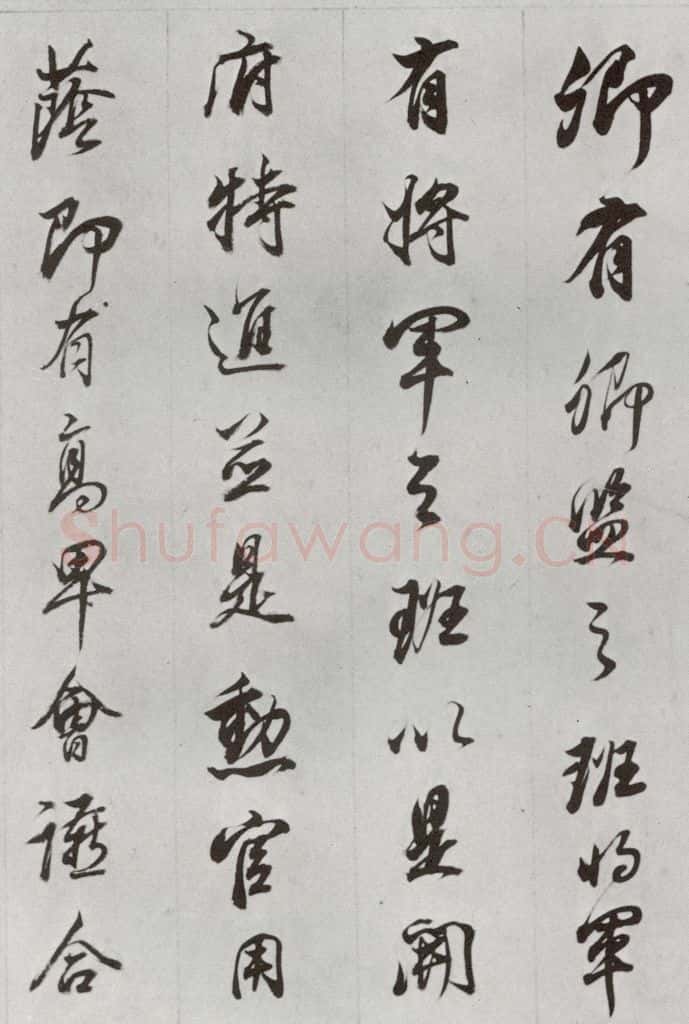 卿有卿監之班將軍
有將軍之班以是開
府特進並是勳官用
蔭即有高卑會讌合
Shufawang.cn